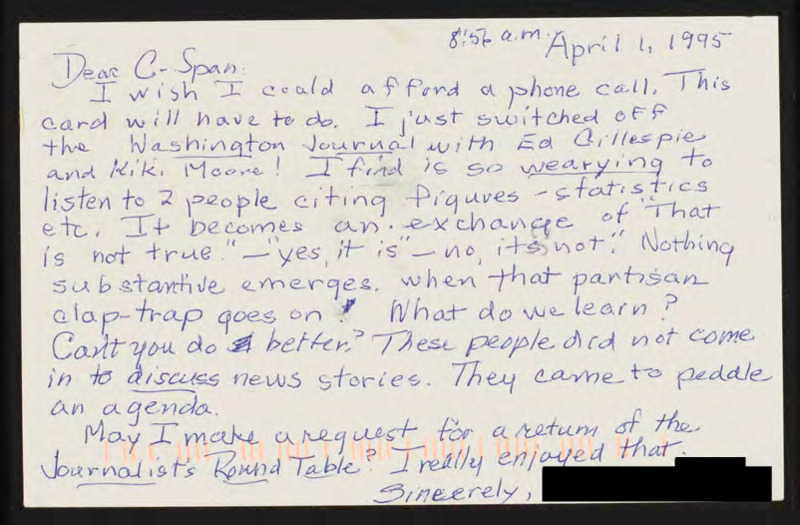 8:56 a.m. April 1, 1995
Dear C-Span:
I wish I could afford a phone call. This
card will have to do. I just switched off
the Washington Journal with Ed Gillespie
and Kiki Moore! I find is so wearying to
listen to 2 people citing figures - statistics
etc. It becomes an exchange of "That
is not true" — "yes, it is" — no, it's not." Nothing
substantive emerges. when that partisan
clap-trap goes on! What do we learn?
Can't you do better? These people did not come
in to discuss news stories. They came to peddle
an agenda.
May I make a request for a return of the
Journalists Round Table? I really enjoyed that.
Sincerely,